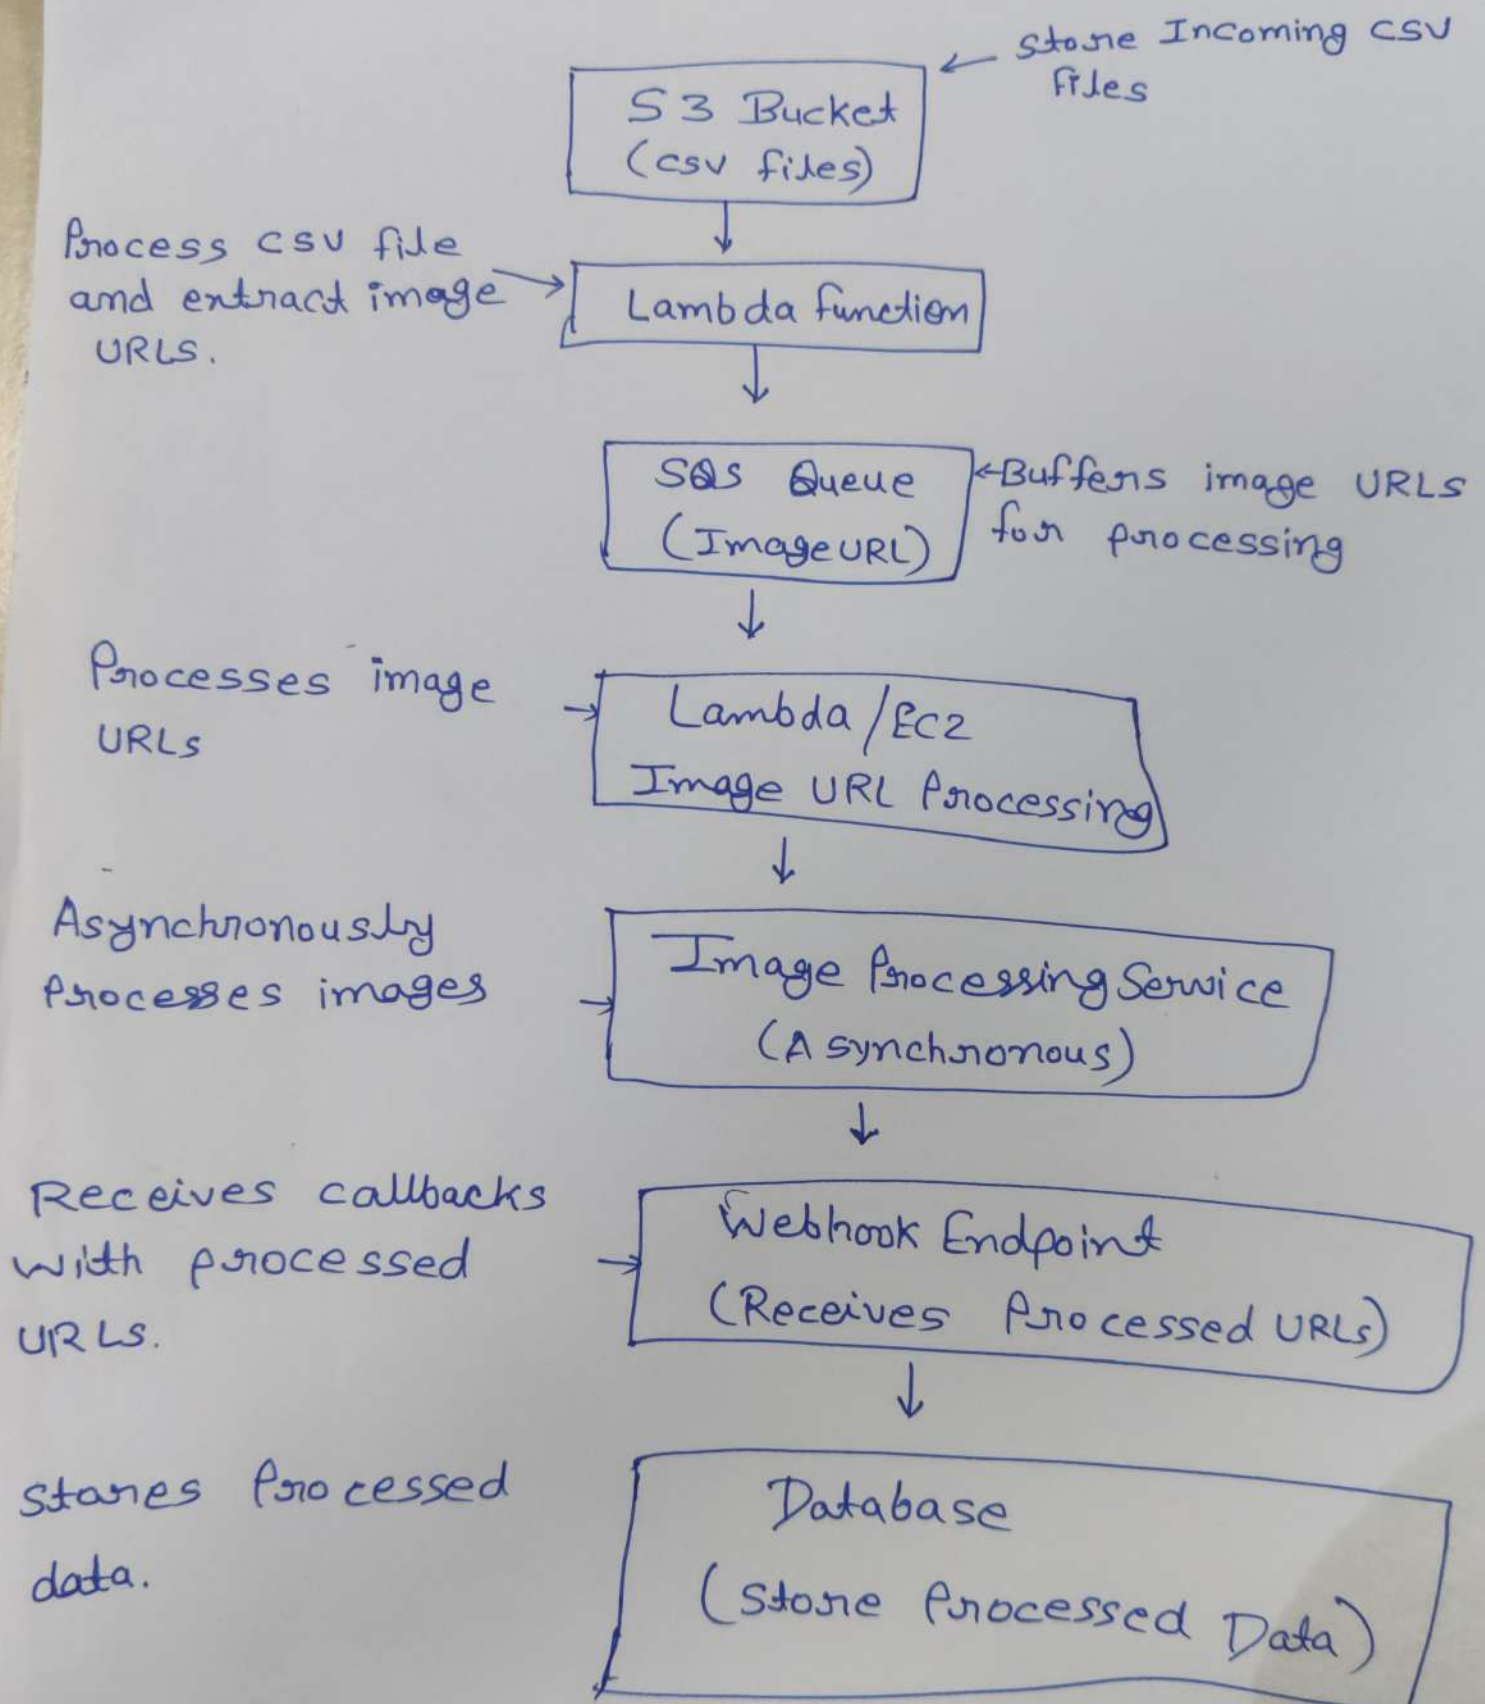 Store Incoming CSV
Files
S3 Bucket
(csv files)
Process CSV file
and extract image
URLS.
Lambda function
SQS Queue
(ImageURL)
Buffers image URLs
for processing
Processes image
URLs
Lambda/EC2
Image URL Processing
Asynchronously
Processes images
Image Processing Service
(Asynchronous)
Receives callbacks
with processed
URLs.
Webhook Endpoint
(Receives Processed URLs)
Stores Processed
data.
Database
(Store Processed Data)